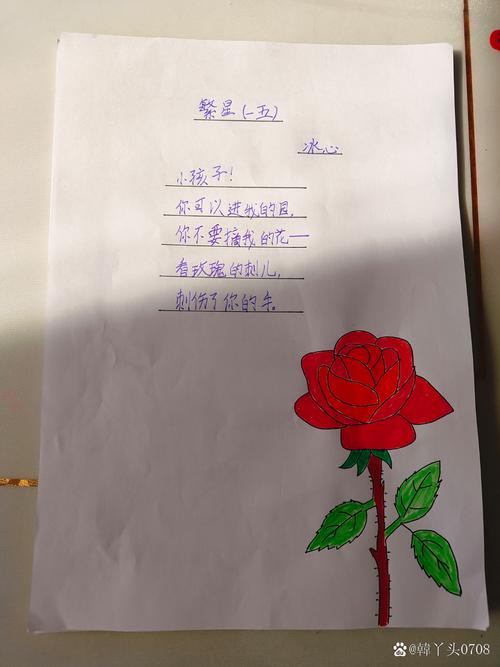 繁星(一五)
冰心
小孩子!
你可以进我的园,
你不要摘我的花——
看玫瑰的刺儿,
刺伤了你的手。
@韓丫头0708